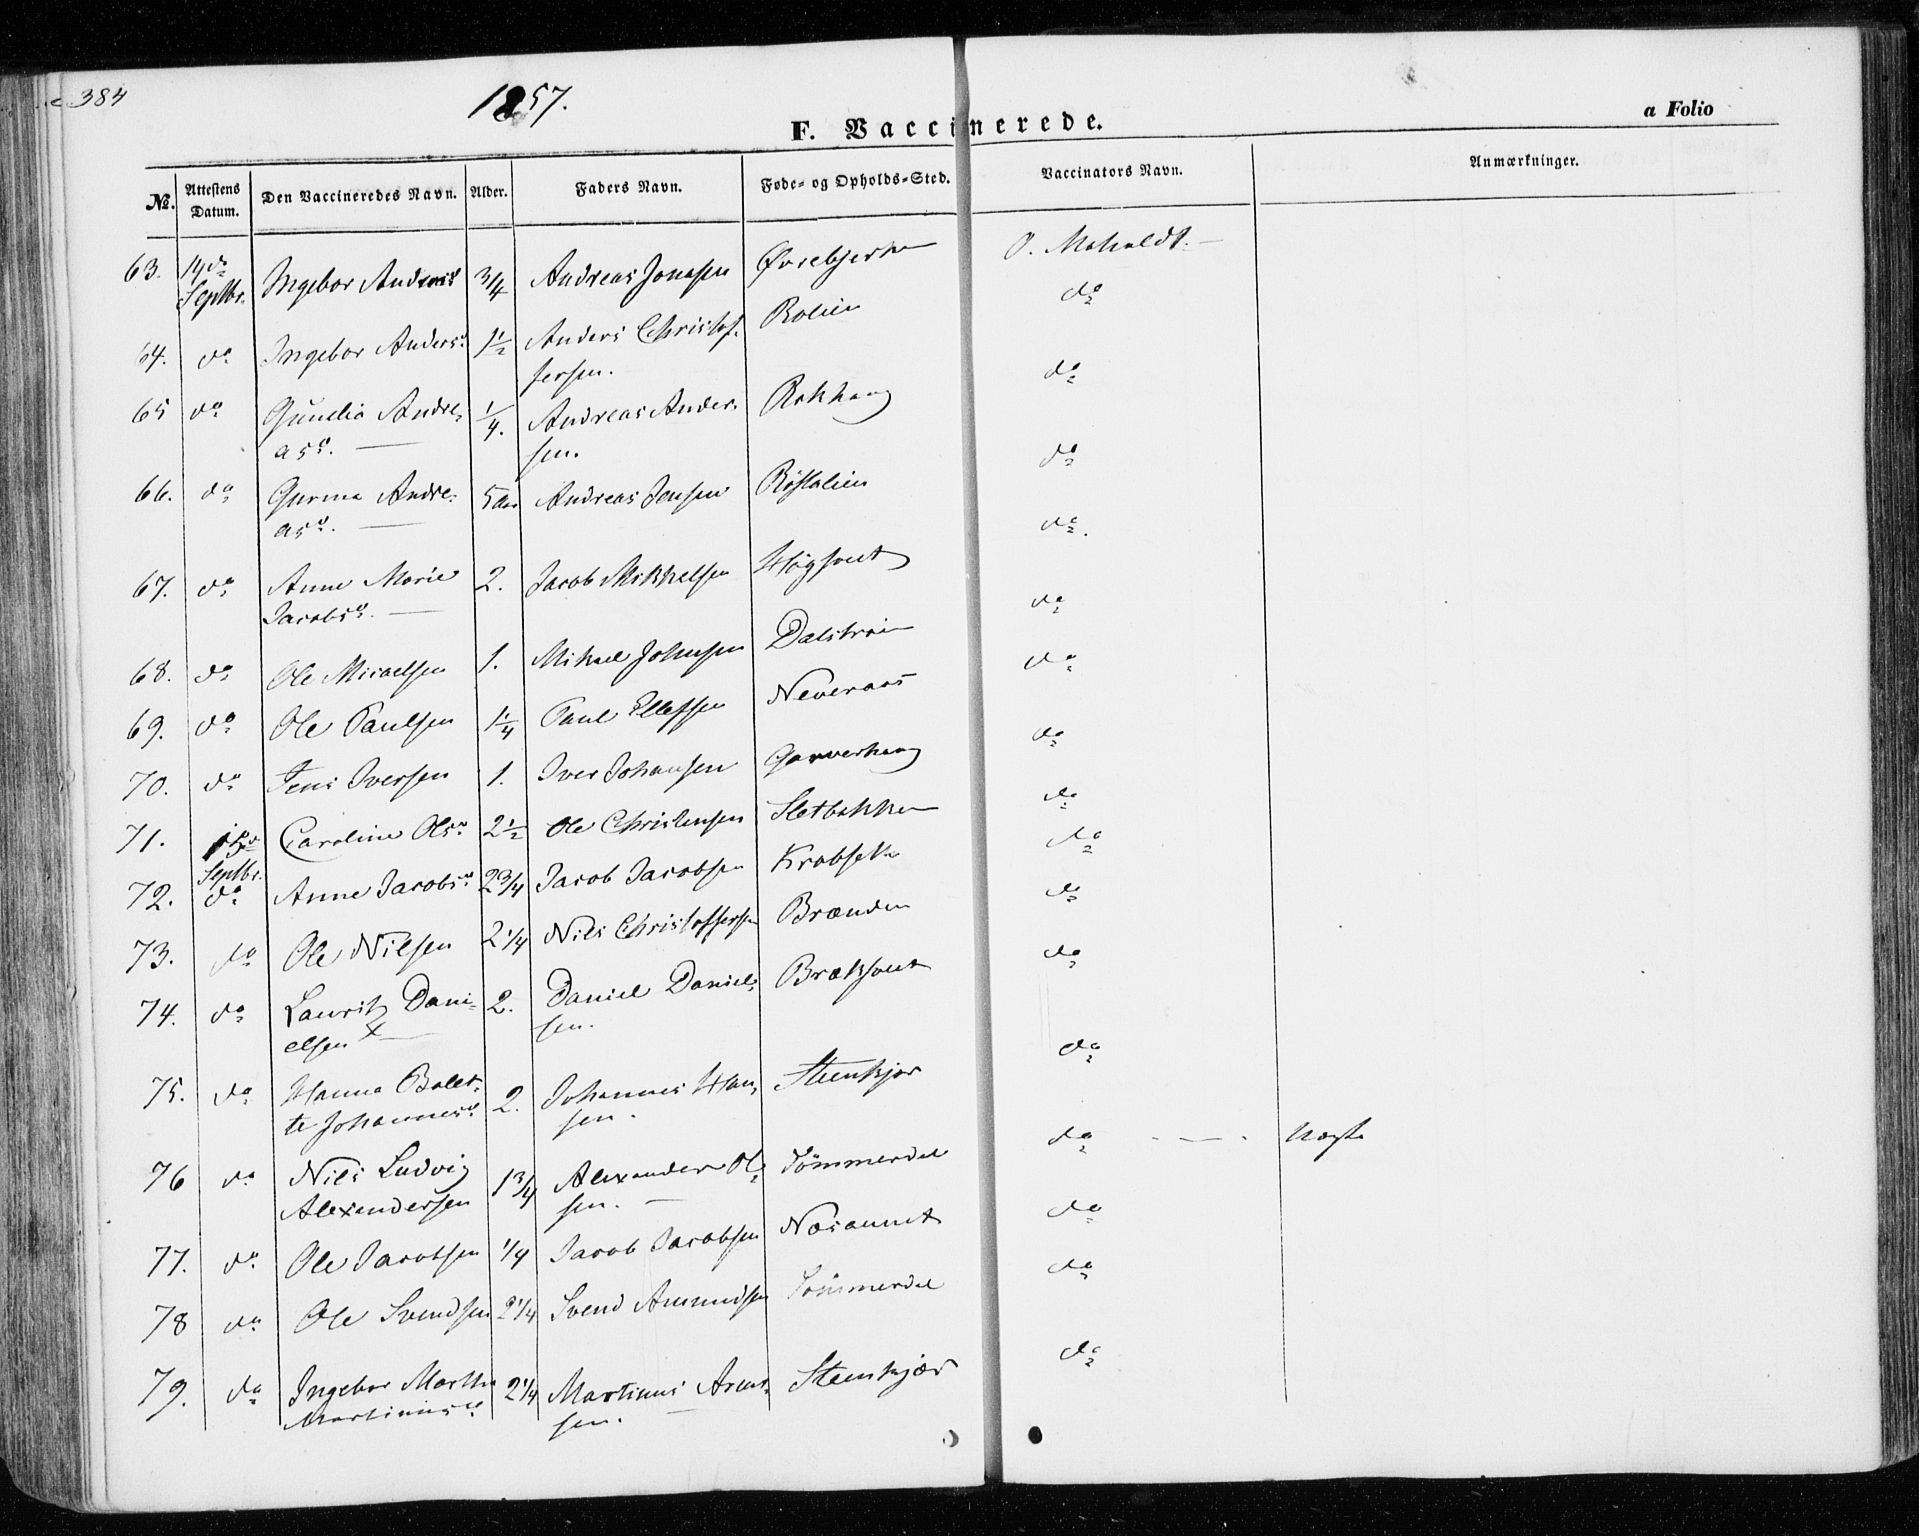 384
1857.
F. Vaccinerede.
a Folio
№. Attestens Datum. Den Vaccineredes Navn. Alder. Faders Navn. Føde- og Opholds-Sted. Vaccinators Navn. Anmærkninger.
63. 14de Septbr. Ingebor Andreasd 3/4 Andreas Jonasen O. Moholdt.
64. do Ingebor Andersd 1 1/2 Anders Christoffersen. Rolien do
65 do Gunelia Andreasd. 1/4. Andreas Andersen. Rokhaug do
66. do Gurina Andreasd. 5 Andreas Jensen Røstalien do
67. do Anne Marie Jacobsd. 2. Jacob Mikkelsen do.
68. do Ole Micaelsen 1. Mikael Johnsen Dalstrøm do
69. do Ole Paulsen 1 1/4 Paul Ellefsen Neveraas do
70. do Jens Iversen 1. Iver Johansen Garverhaug do
71. 15de Septbr. Caroline Olsd 2 1/2 Ole Christensen Sletbakken do
72. do Anne Jacobsd 2 3/4 Jacob Jacobsen do
73. do Ole Nilsen 2 1/4 Nils Christoffersen Brænden do
74. do Lauritz Danielsen x 2. Daniel Danielsen. do
75. do Hanna Bolette Johannesd 2. Johannes Hansen. Steenkjær do
76 do Nils Ludvig Alexandersen 1 3/4 Alexander Olsen. Tømmerdal do
77. do Ole Jacobsen 1/4 Jacob Jacobsen do
78 do Ole Svendsen 2 1/4 Svend Amundsen Tømmerdal do
79. do Ingebor Martha Martinusd 2 1/4 Martinus Arentsen. Steenkjær do